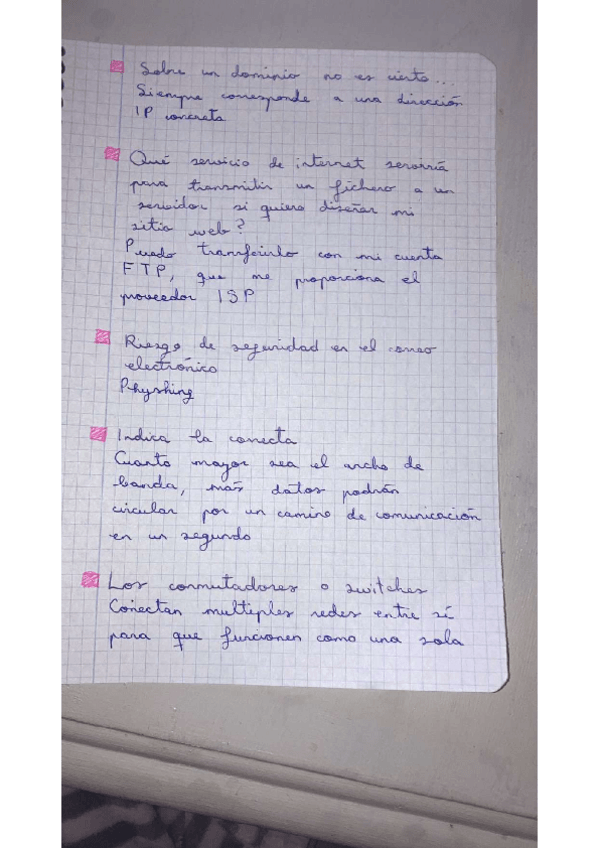 Sobre un dominio no es cierto...
Siempre corresponde a una dirección
IP concreta
Qué servicio de internet
para transmitir un fichero a un
servidor si quiero diseñar mi
sitio web?
Puedo transferirlo con mi cuenta
FTP, que me proporciona el
proveedor ISP
Riesgo de seguridad en el correo
electrónico
Physhing
Indica la correcta
Cuanto mayor sea el ancho de
banda, más datos podrán
circular por un camino de comunicación
en un segundo
Los conmutadores o switches
Conectan multiples redes entre sí
para que funcionen como una sola